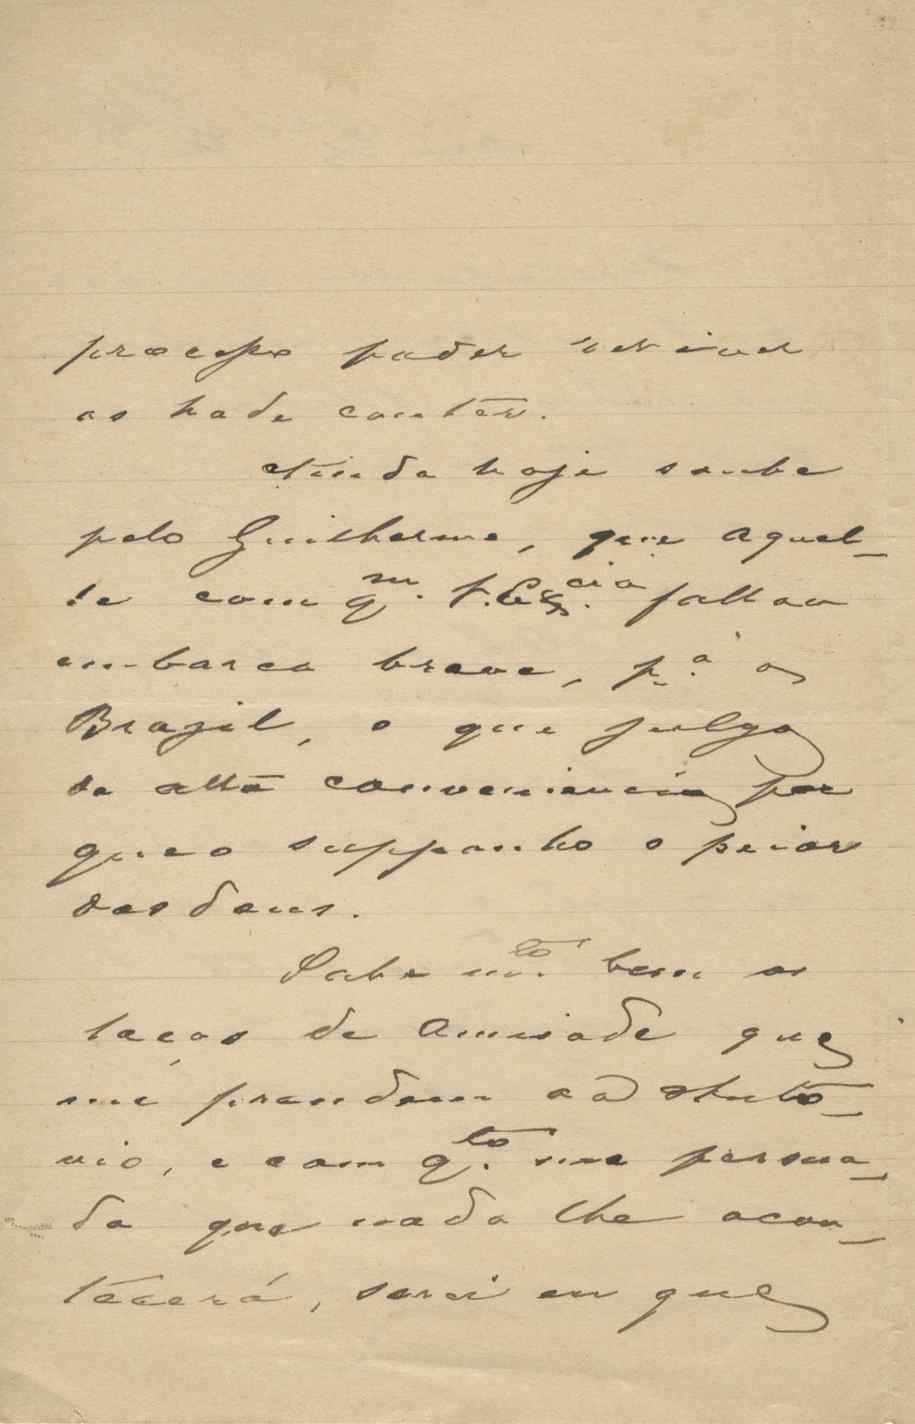 processo poder
as hade contêr.
Ainda hoje soube
pelo Guilherme, que aquel-
le com q.m V. Ex.cia fallou
embarca breve, p.a o
Brazil, o que julgo
de alta conveniencia por
que o supponho o peior
dos dous.
Sabe m.to bem os
laços de amisade que
me prendem ao Anto-
nio, e com q.to me persua-
da que nada lhe acon-
tecerá, serei eu que